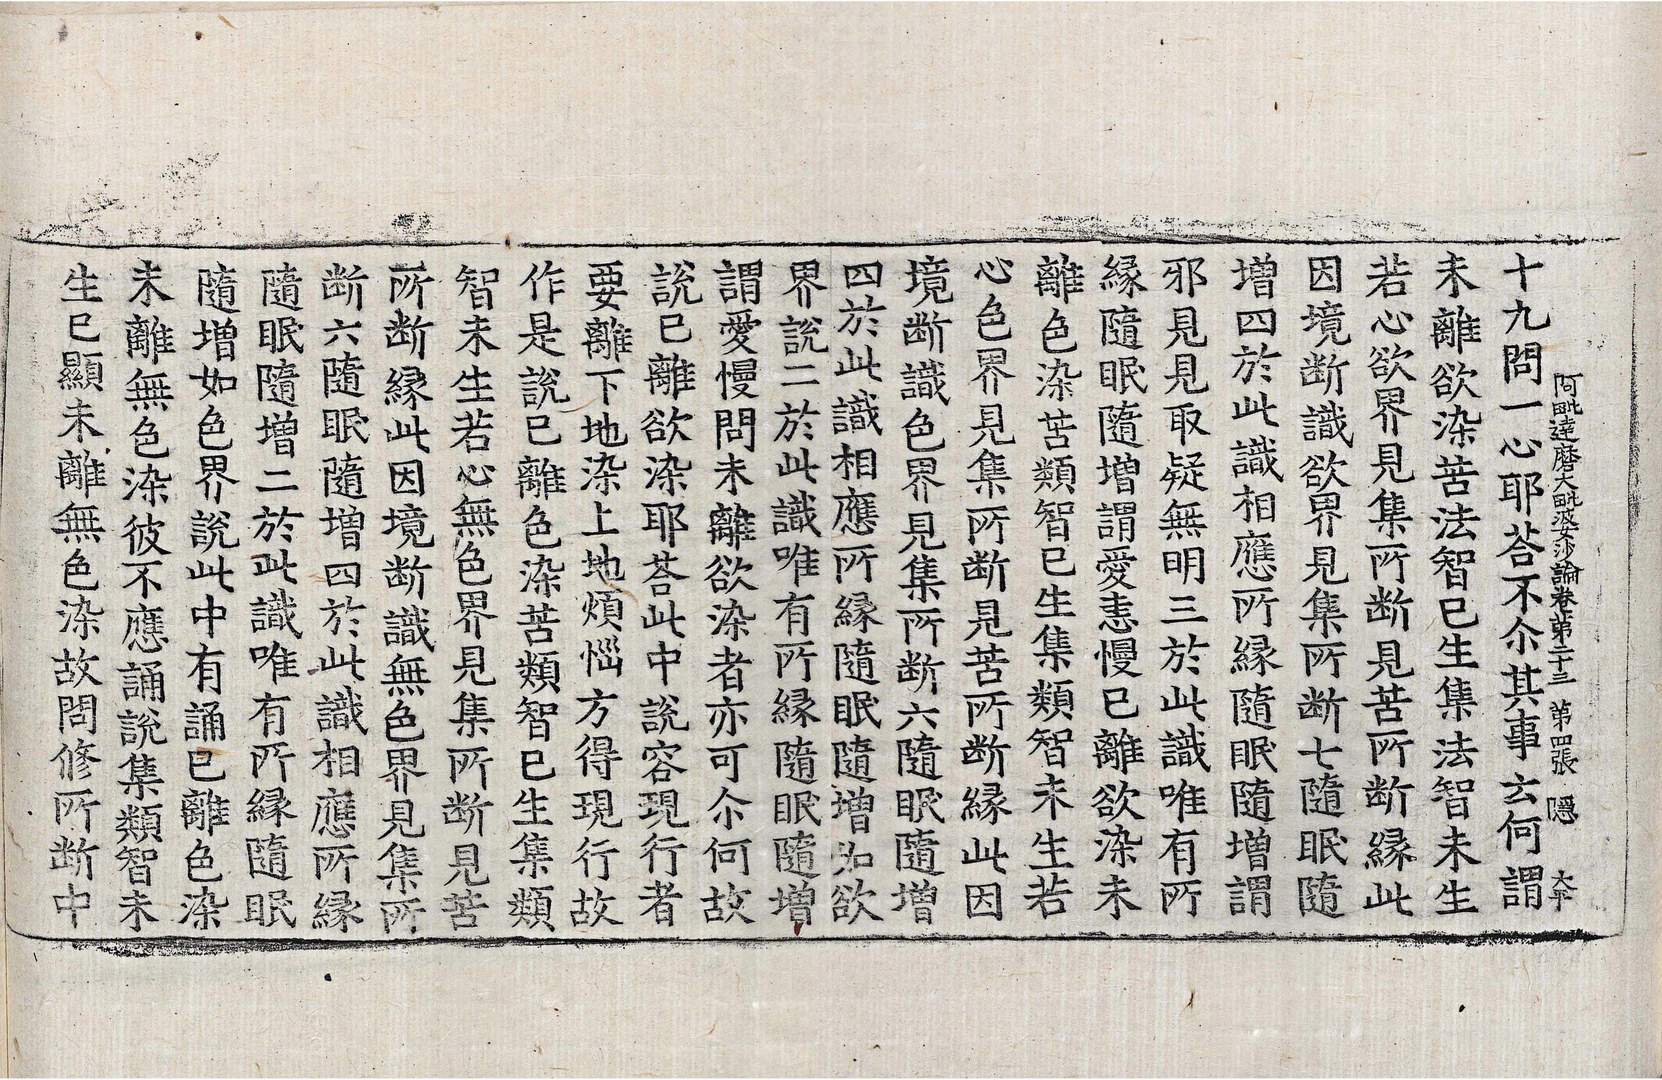 阿毗達磨大毗婆沙論卷第二十三　第四張　隱　大平
十九問一心耶荅不尒其事玄何謂
未離欲染苦法智已生集法智未生
若心欲界見集所断見苦所断緣此
因境断識欲界見集所断七隨眠隨
增四於此識相應所緣隨眠隨增謂
邪見見取疑無明三於此識唯有所
緣隨眠隨增謂愛恚慢已離欲染未
離色染苦類智已生集類智未生若
心色界見集所断見苦所断緣此因
境断識色界見集所断六隨眠隨增
四於此識相應所緣隨眠隨增如欲
界說二於此識唯有所緣隨眠隨增
謂愛慢問未離欲染者亦可尒何故
說已離欲染耶荅此中說容現行者
要離下地染上地煩惱方得現行故
作是說已離色染苦類智已生集類
智未生若心無色界見集所断見苦
所断緣此因境断識無色界見集所
断六隨眠隨增四於此識相應所緣
隨眠隨增二於此識唯有所緣隨眠
隨增如色界說此中有誦已離色染
未離無色染彼不應誦說集類智未
生已顯未離無色染故問修所断中